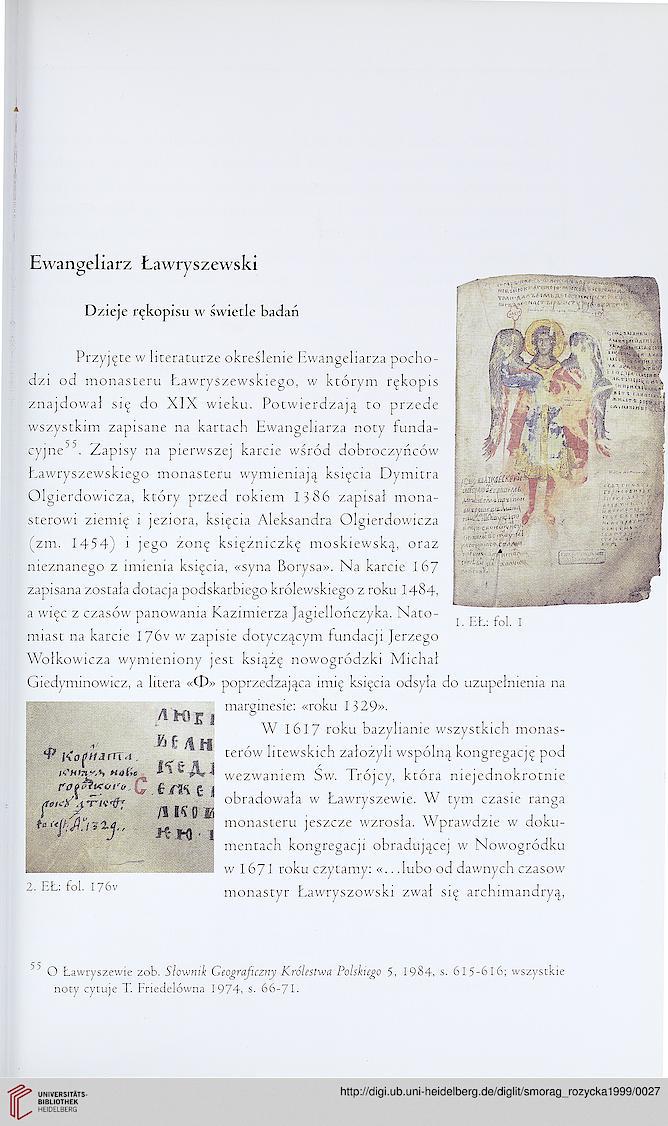 Ewangeliarz Ławryszewski
Dzieje rękopisu w świetle badań
Przyjęte w literaturze określenie Ewangeliarza pocho-
dzi od monasteru Ławryszewskiego, w którym rękopis
znajdował się do XIX wieku. Potwierdzają to przede
wszystkim zapisane na kartach Ewangeliarza noty funda-
cyjne55. Zapisy na pierwszej karcie wśród dobroczyńców
Ławryszewskiego monasteru wymieniają księcia Dymitra
Olgierdowicza, który przed rokiem 1386 zapisał mona-
sterowi ziemię i jeziora, księcia Aleksandra Olgierdowicza
(zm. 1454) i jego żonę księżniczkę moskiewską, oraz
nieznanego z imienia księcia, «syna Borysa». Na karcie 167
zapisana została dotacja podskarbiego królewskiego z roku 1484,
a więc z czasów panowania Kazimierza Jagiellończyka. Nato-
miast na karcie 176v w zapisie dotyczącym fundacji Jerzego
Wołkowicza wymieniony jest książę nowogródzki Michał
Giedyminowicz, a litera «Ф» poprzedzająca imię księcia odsyła do uzupełnienia na
marginesie: «roku 1329».
W 1617 roku bazylianie wszystkich monas-
terów litewskich założyli wspólną kongregację pod
wezwaniem Św. Trójcy, która niejednokrotnie
obradowała w Ławryszewie. W tym czasie ranga
monasteru jeszcze wzrosła. Wprawdzie w doku-
mentach kongregacji obradującej w Nowogródku
w 1671 roku czytamy: «...lubo od dawnych czasow
monastyr Ławryszowski zwał się archimandryą,
1. EŁ: fol. 1
2. EŁ: fol. 176v
55 O Ławryszewie zob. Słownik Geograficzny Królestwa Polskiego 5, 1984, s. 615-616; wszystkie
noty cytuje T. Friedelówna 1974, s. 66-71.
UNIVERSITÄTS-
BIBLIOTHEK
HEIDELBERG
http://digi.ub.uni-heidelberg.de/diglit/smorag_rozycka1999/0027